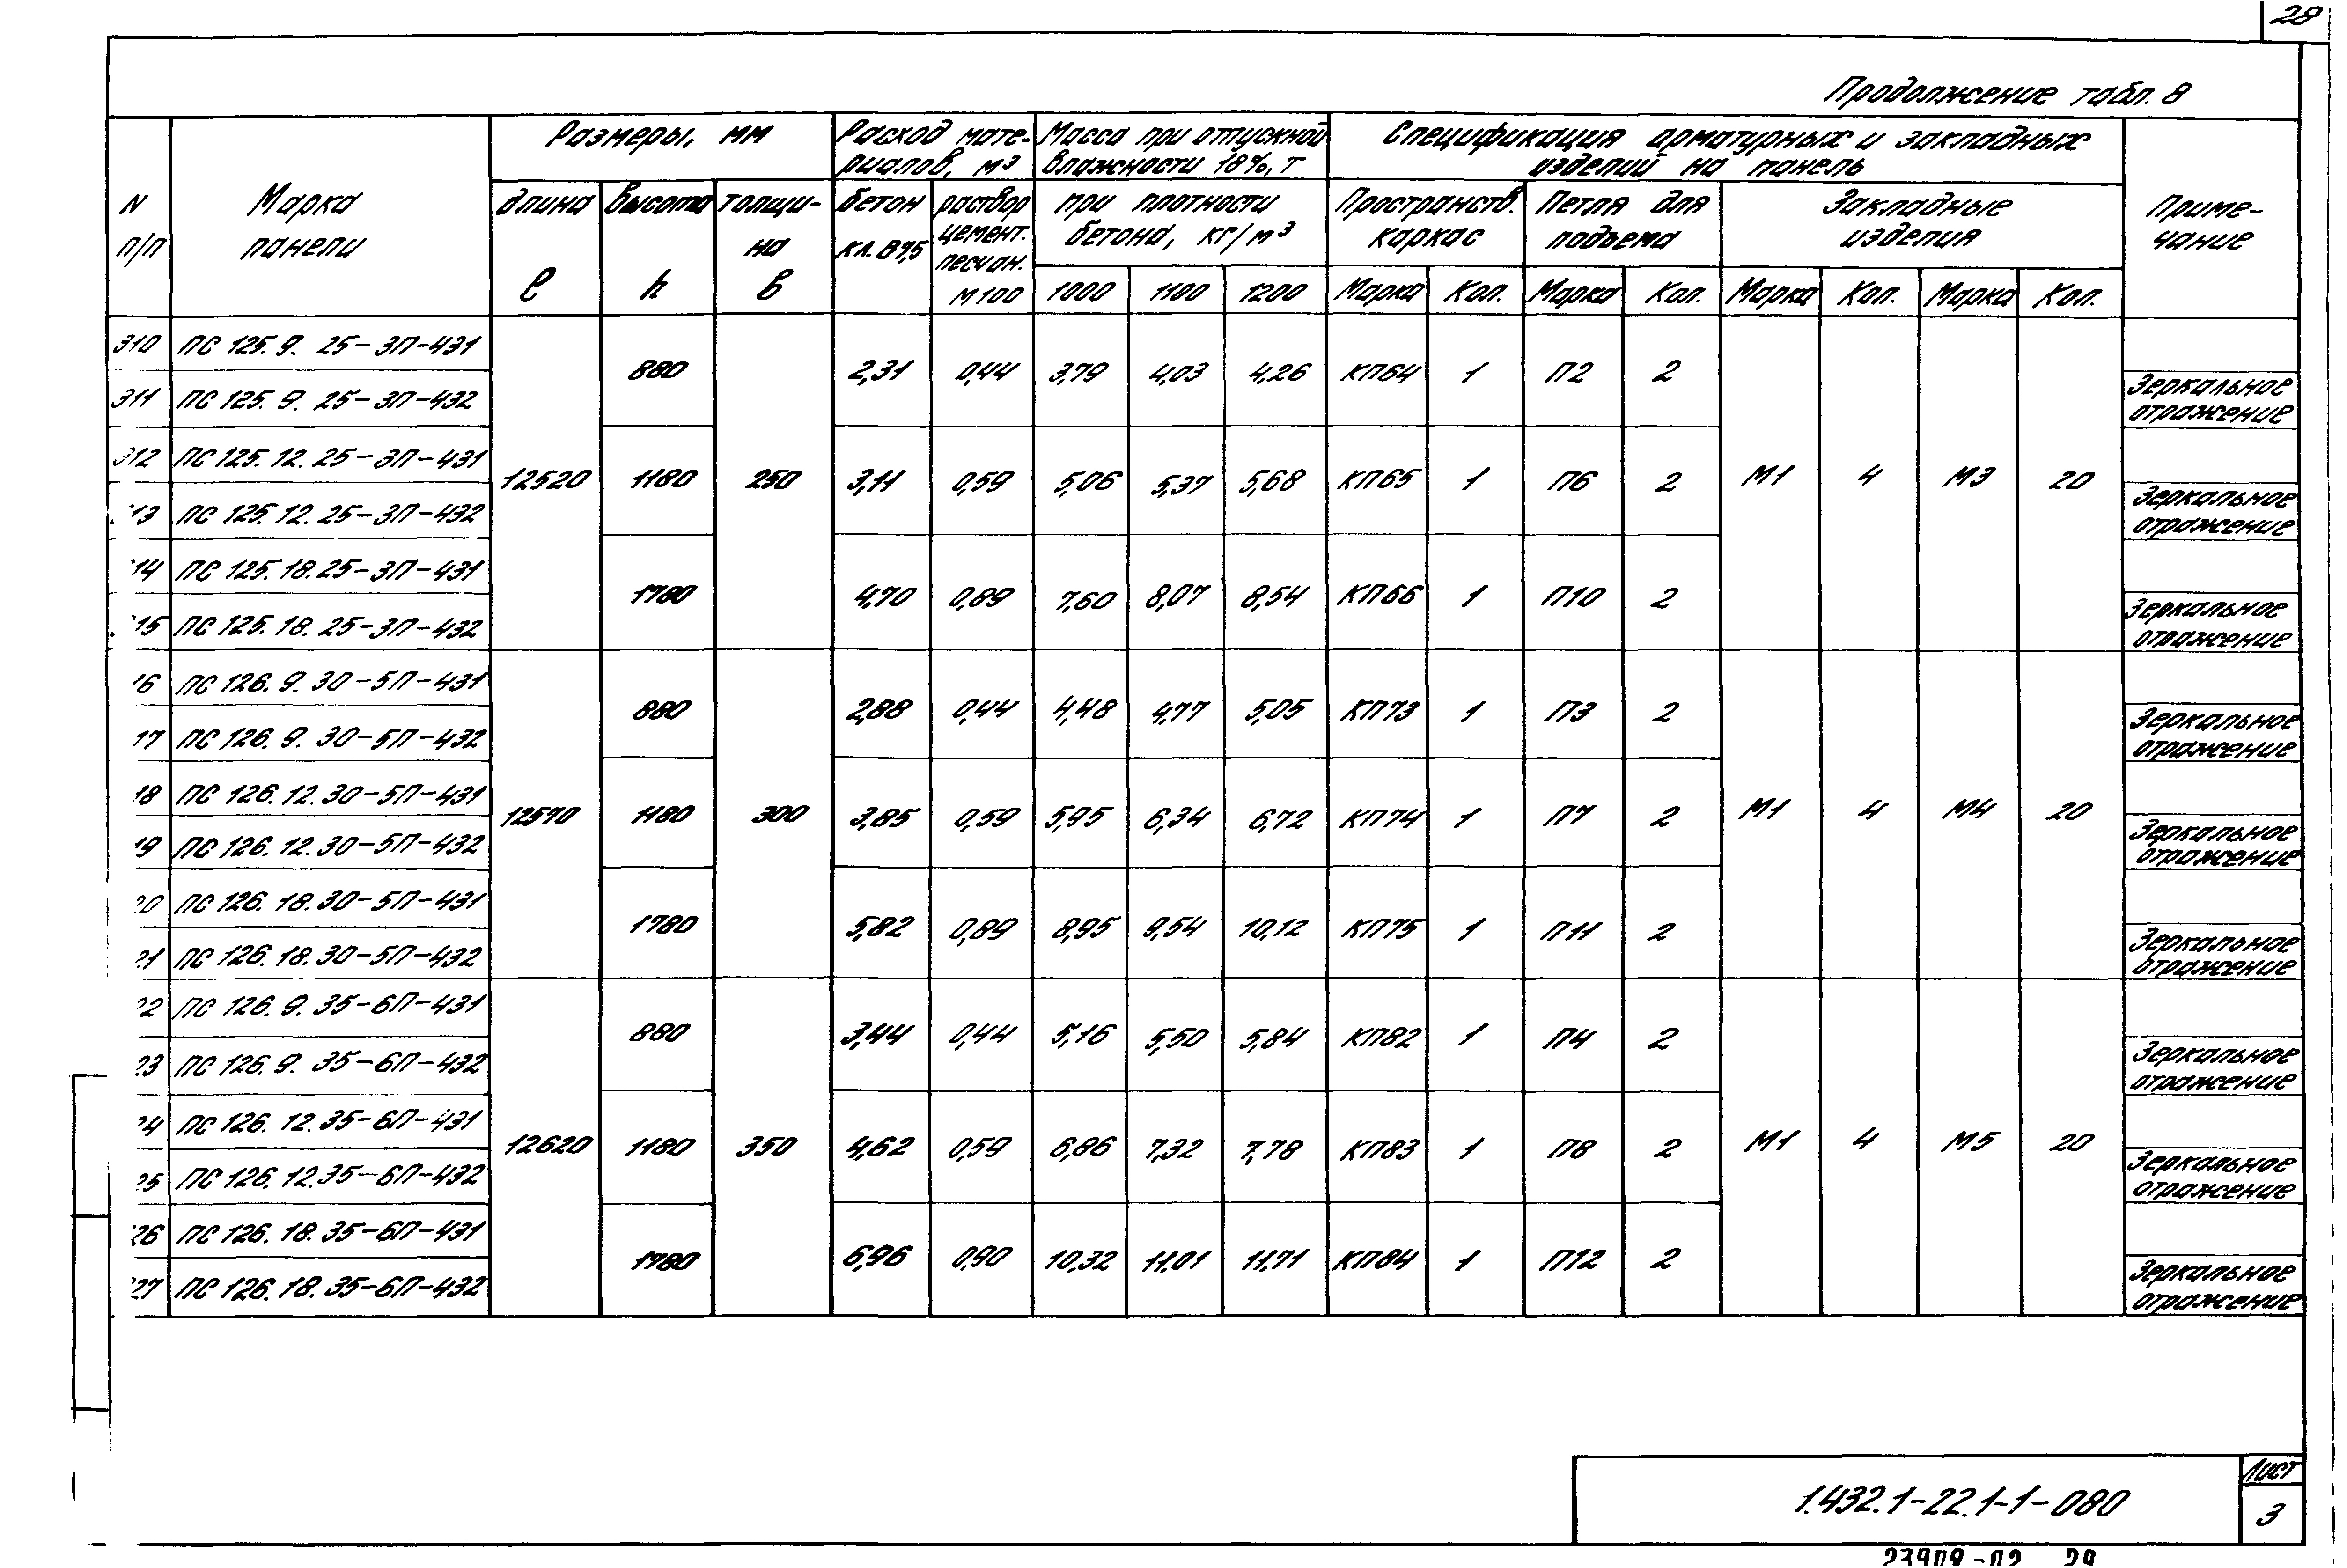 28
Продолжение табл. 8
N п/п
Марка панели
Размеры, мм
длина ℓ
высота h
толщина в
Расход материалов, м³
бетон кл. В7,5
раствор цемент. песчан. М100
Масса при отпускной влажности 18%, т
при плотности бетона, кг/м³
1000 1100 1200
Спецификация арматурных и закладных изделий на панель
Пространств. каркас
Петля для подъема
Закладные изделия
Марка Кол. Марка Кол. Марка Кол. Марка Кол.
Примечание
310 ПС 125.9. 25-3П-431
880 2,31 0,44 3,79 4,03 4,26 КП64 1 П2 2
311 ПС 125.9. 25-3П-432 Зеркальное отражение
312 ПС 125.12.25-3П-431
12520 1180 250 3,11 0,59 5,06 5,37 5,68 КП65 1 П6 2 М1 4 М3 20
13 ПС 125.12.25-3П-432 Зеркальное отражение
14 ПС 125.18.25-3П-431
1780 4,70 0,89 7,60 8,07 8,54 КП66 1 П10 2
15 ПС 125.18.25-3П-432 Зеркальное отражение
16 ПС 126.9.30-5П-431
880 2,88 0,44 4,48 4,77 5,05 КП73 1 П3 2
17 ПС 126.9.30-5П-432 Зеркальное отражение
18 ПС 126.12.30-5П-431
12570 1180 300 3,85 0,59 5,95 6,34 6,72 КП74 1 П7 2 М1 4 М4 20
19 ПС 126.12.30-5П-432 Зеркальное отражение
20 ПС 126.18.30-5П-431
1780 5,82 0,89 8,95 9,54 10,12 КП75 1 П11 2
21 ПС 126.18.30-5П-432 Зеркальное отражение
22 ПС 126.9.35-6П-431
880 3,44 0,44 5,16 5,50 5,84 КП82 1 П4 2
23 ПС 126.9. 35-6П-432 Зеркальное отражение
24 ПС 126.12.35-6П-431
12620 1180 350 4,62 0,59 6,86 7,32 7,78 КП83 1 П8 2 М1 4 М5 20
25 ПС 126.12.35-6П-432 Зеркальное отражение
26 ПС 126.18.35-6П-431
1780 6,96 0,90 10,32 11,01 11,71 КП84 1 П12 2
27 ПС 126.18.35-6П-432 Зеркальное отражение
1.432.1-22.1-1-080
Лист
3
23909-02 29